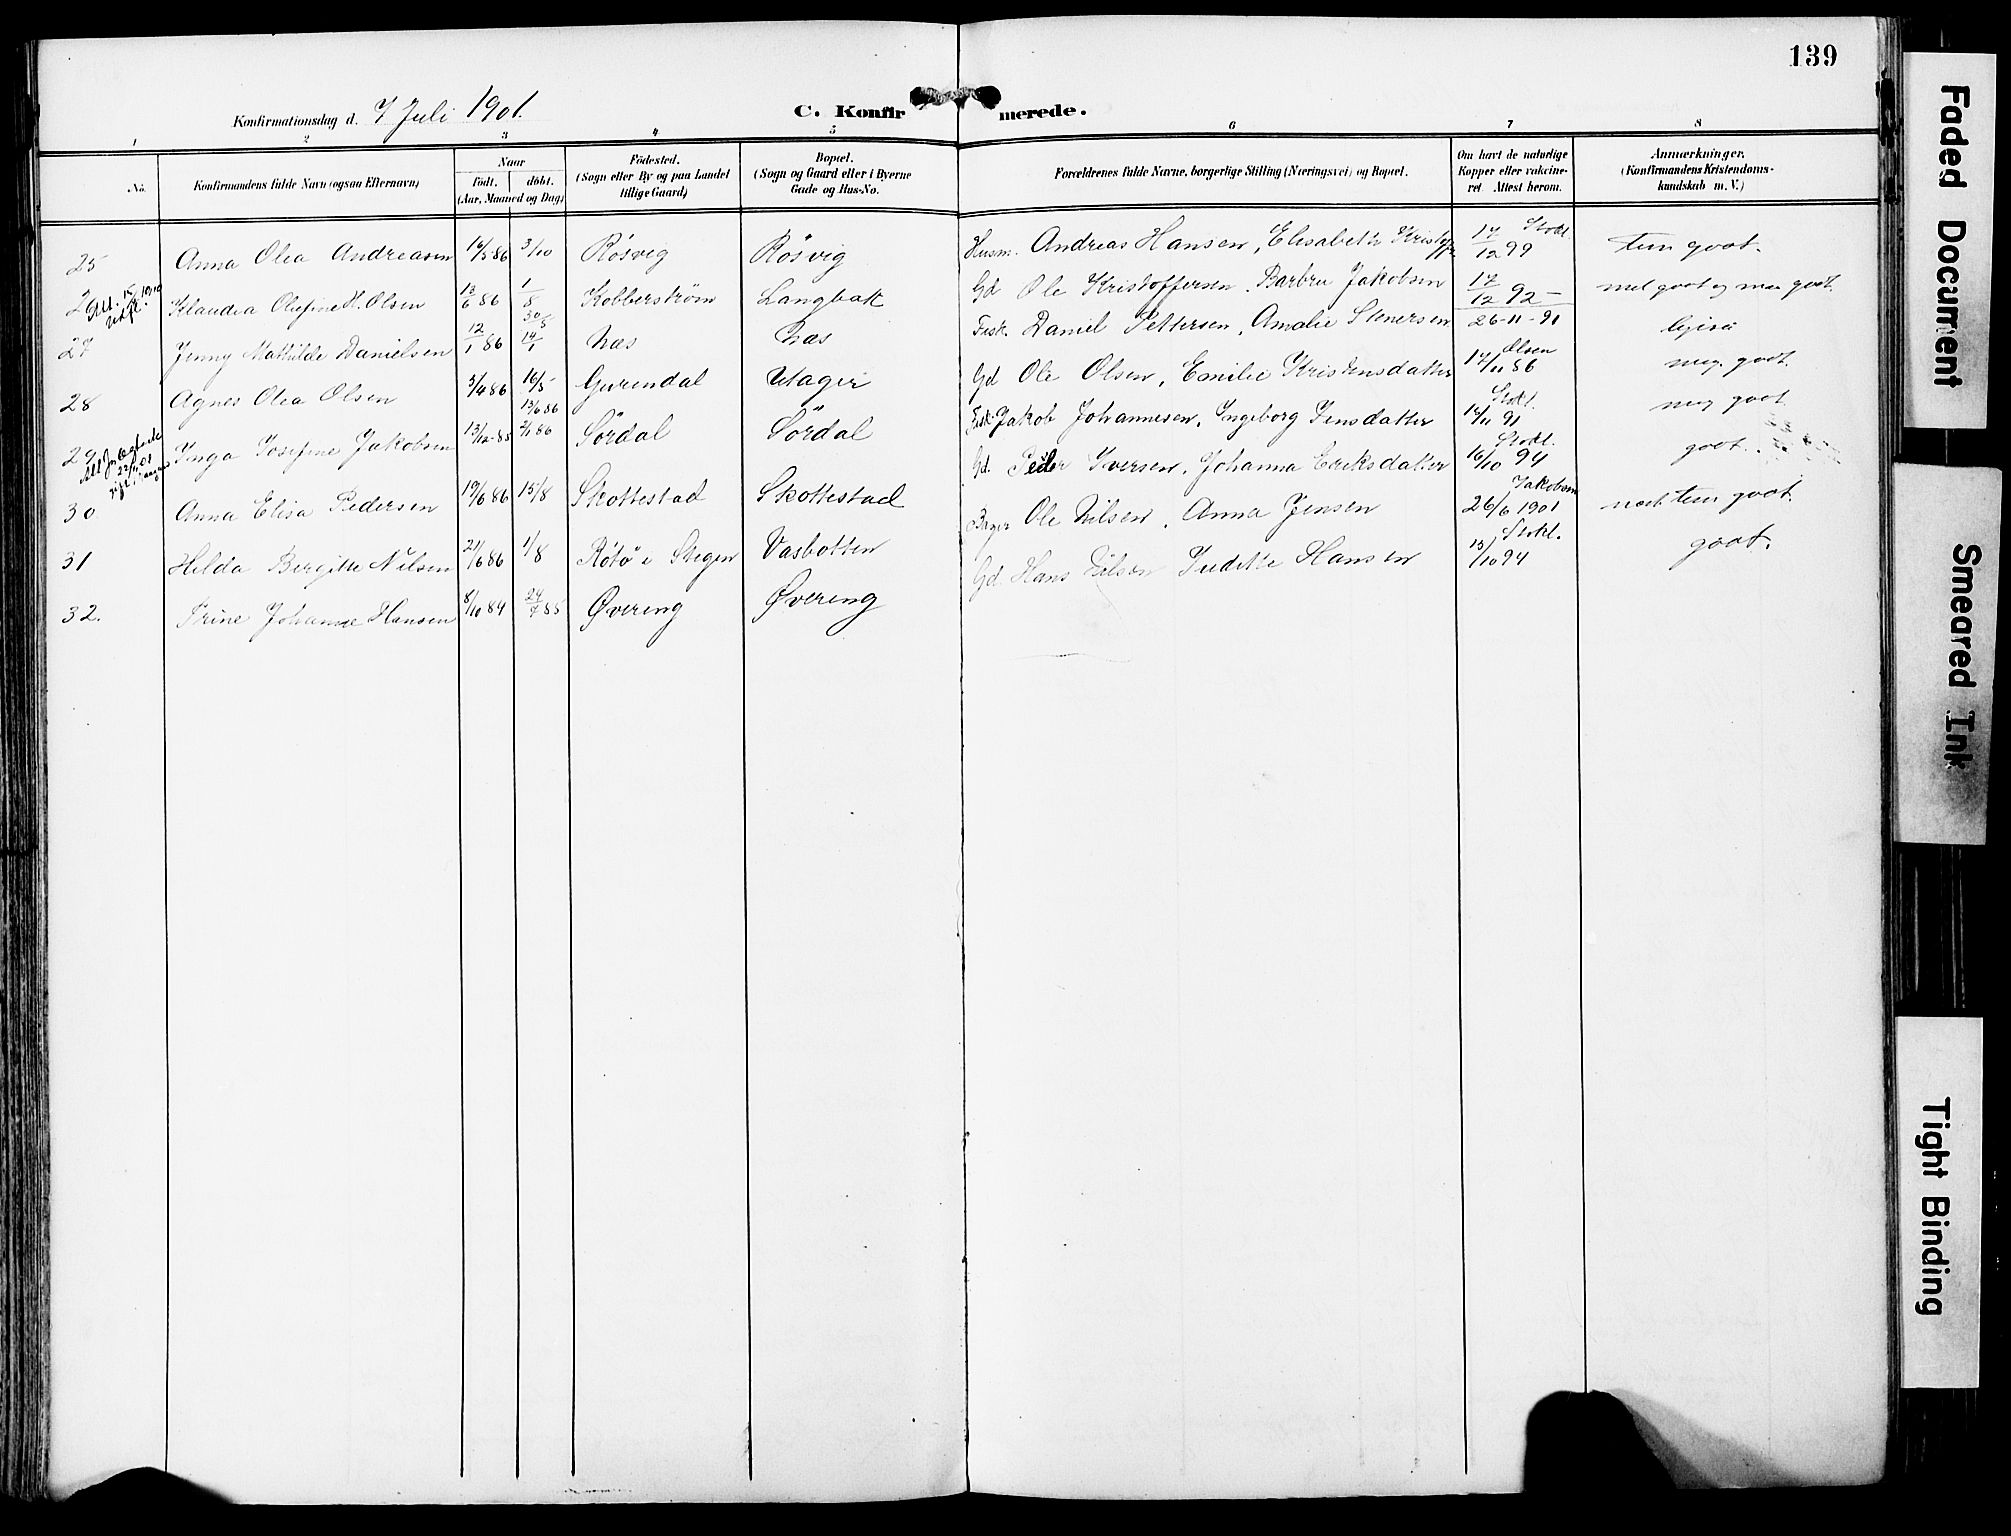 139
Konfirmationsdag d. 7 Juli 1901.
C. Konfirmerede.
1 2 3 4 5 6 7 8
No.
Konfirmandens fulde Navn (ogsaa Efternavn)
Naar
Födt. döbt.
(Aar, Maaned og Dag)
Födested.
(Sogn eller By og paa Landet
tillige Gaard)
Bopæl.
(Sogn og Gaard eller i Byerne
Gade og Hus-No.
Forældrenes fulde Navne, borgerlige Stilling (Næringsvei) og Bopæl.
Om havt de naturlige
Kopper eller vakcine-
ret. Attest herom.
Anmærkninger.
(Konfirmandens Kristendoms-
kundskab m. V.)
25 Anna Olea Andreasen 16/5 86 3/10 Rösvig Rösvig Husm. Andreas Hansen, Elisabeth Kristoffr 17/12 99 Stokl. tem. godt.
Klaudia Olufine H. Olsen 13/6 86 1/8 Kobberstrøm Langbak Gd Ole Kristoffersen, Barbru Jakobsen 17/12 92 - med godt og meg godt.
27 Jenny Mathilde Danielsen 12/1 86 30/5 Næs Næs Fisk. Daniel Pettersen, Amalie Stenersen 26-11-91
28 Agnes Olea Olsen 3/4 86 16/5 Gyrendal Utager Gd Ole Olsen, Emilie Kristensdatter 17/11 86 Olsen meg. godt.
29 Inga Josefine Jakobsen 13/12-85 2/1 86 13/6 86 Sördal Sördal Fisk Jakob Johannesen, Ingeborg Jensdatter 14/11 91 Stokl. meg godt
30 Anna Elisa Pedersen 19/6 86 15/8 Skottestad Skottestad Gd. Peder Iversen, Johanna Eriksdatter 16/10 94 Stokl. godt.
31 Hilda Birgitte Nilsen 21/6 86 1/8 Rötö i Stegen Vasbotten Ole Nilsen, Anna Jensen 26/6 1901 Jakobsen tem godt.
32. Trine Johanne Hansen 8/10 84 24/7 85 Øvereng Øvereng Gd. Hans Nilsen Judithe Hansen 15/10 94 Stokl. godt.
Faded Document
Smeared Ink
Tight Binding